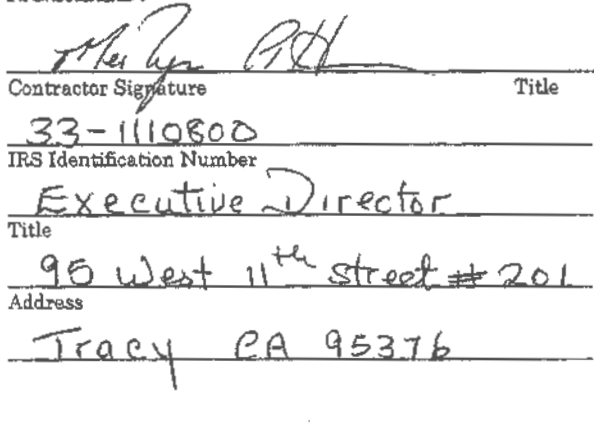 Contractor Signature Title
33-1110800
IRS Identification Number
Executive Director
Title
95 West 11th Street # 201
Address
Tracy CA 95376